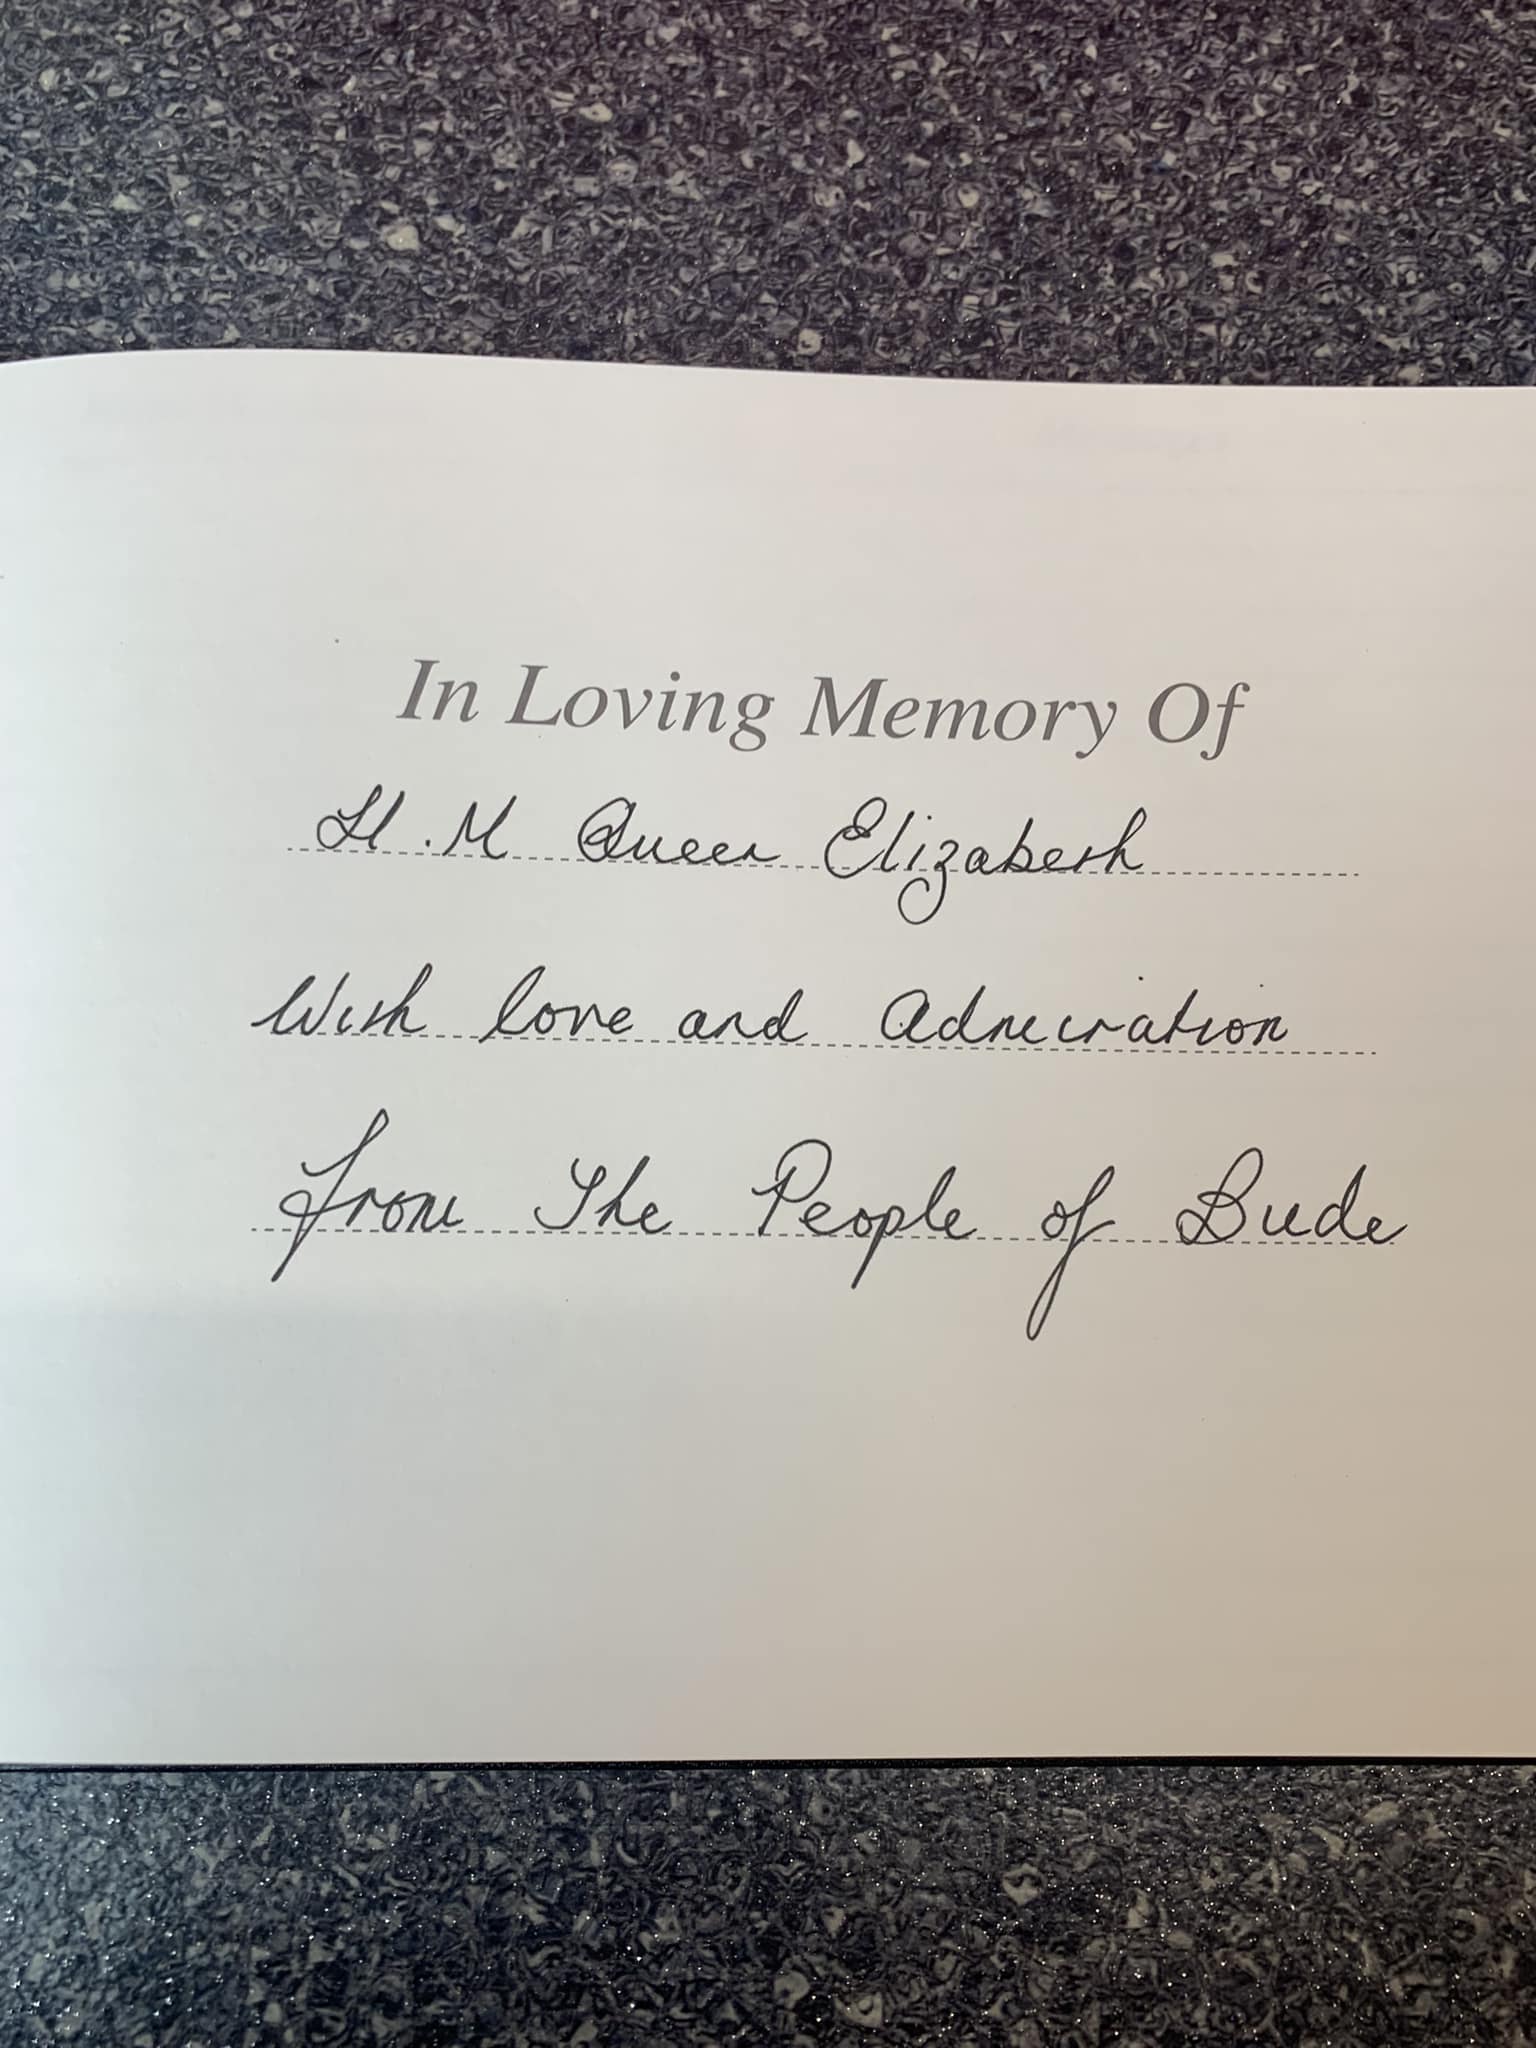 In Loving Memory Of
H.M Queen Elizabeth
With love and admiration
from The People of Bude